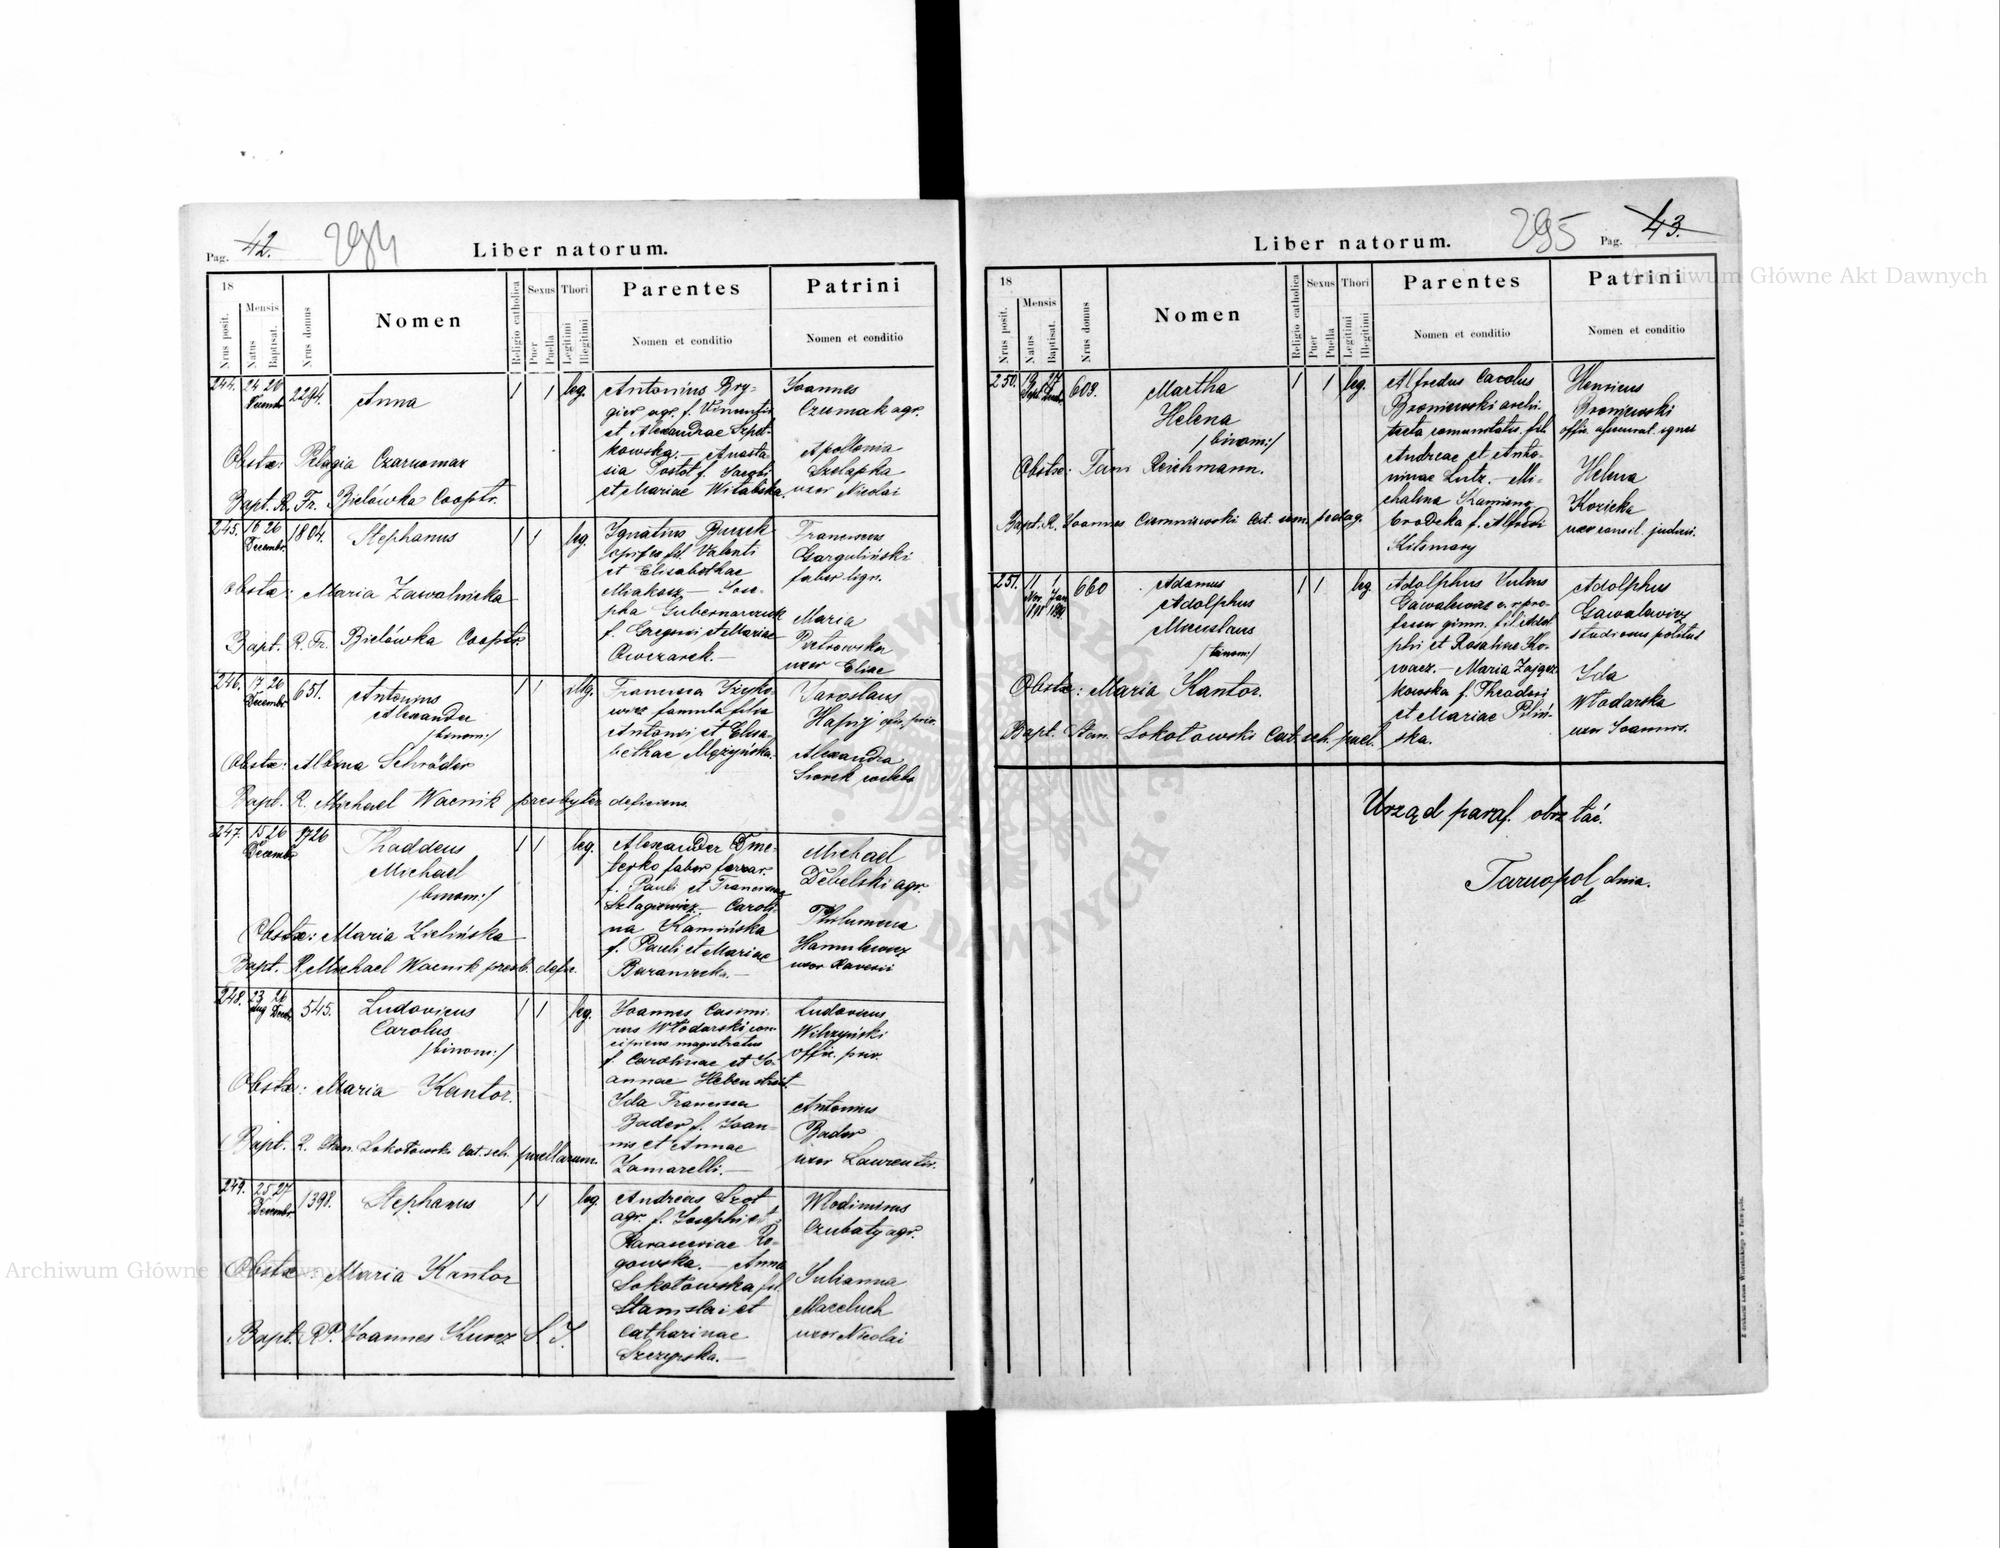 Pag. 42. 294 Liber natorum.
18
Nrus posit.
Mensis
Natus
Baptisat.
Nrus domus
Nomen
Religio catholica
Sexus
Puer
Puella
Thori
Legitimi
Illegitimi
Parentes
Nomen et conditio
Patrini
Nomen et conditio
244. 24 26 Decembr. 2294. Anna 1 1 leg.
Antonius Bry-
gier agr. f.
et Alexandrae Szpot-
kowska. — Anasta
sia Postot f. Jacobi
et Mariae Witabska
Joannes
Czumak agr.
Apollonia
Szelapka
uxor Nicolai
Obstx: Pelagia Czarnomaz
Bapt. R. Fr. Bielówka Cooptr.
245. 16 26 Decembr. 1804. Stephanus 1 1 leg.
Ignatius Burek
opifex fil. Valenti
et Elisabethae
Miakosz — Jose-
pha Gubernawczuk
f. Gregorii et Mariae
Owczarek. —
Franciscus
Garguliński
faber lign.
Maria
Piotrowska
uxor Eliae
Obstx: Maria Zawalnicka
Bapt. R. Fr. Bielówka Cooptr.
246. 17 26 Decembr. 651. Antonius 1 1 illeg.
Alexander
/binom:/
Francisca
famula filia
Antonii et Elisa-
bethae Mężyńska.
Jaroslaus
Hafny priv.
Alexandra
Siorek
Obstx: Albina Schröder
Bapt. R. Michael Wacnik presbyter deficiens.
247. 15 26 Decembr. 1726 Thaddeus 1 1 leg.
Michael
/binom:/
Alexander Dme-
terko faber ferrar.
f. Pauli et Francisca
Szlagiewicz. — Caroli-
na Kamińska
f. Pauli et Mariae
Baraniecka. —
Michael
Debelski agr.
Philumena
Hamulewicz
uxor Xaverii
Obstx: Maria Zielińska
Bapt. R. Michael Wacnik presb. defic.
248. 23 26 Aug. Decbr. 545. Ludovicus 1 1 leg.
Carolus
/binom:/
Joannes Casimi-
rus Włodarski con-
cipiens magistratus
f. Carolinae et Jo-
annae Hebenstreit
Ida Francisca
Bader f. Joan-
nis et Annae
Zamarelli. —
Ludovicus
Wilczyński
offic. priv.
Antonius
Bader
uxor Laurentii.
Obstx: Maria Kantor.
Bapt. R. Stan. Sokołowski Cat. sch. puellarum.
249. 25 27 Decembr. 1398. Stephanus 1 1 leg.
Andreas Szot
agr. f. Josephi et
Parasceviae Ro-
gowska. — Anna
Sokołowska fil.
Stanislai et
Catharinae
Szczyrska. —
Wlodimirus
Czubaty agr.
Julianna
Marcluch
uxor Nicolai
Obstx: Maria Kantor
Bapt. RP. Joannes Kurcz S. J.
Liber natorum. 295 Pag. 43.
18
Nrus posit.
Mensis
Natus
Baptisat.
Nrus domus
Nomen
Religio catholica
Sexus
Puer
Puella
Thori
Legitimi
Illegitimi
Parentes
Nomen et conditio
Patrini
Nomen et conditio
250. 19 27 Sept. Decbr. 609. Martha 1 1 leg.
Helena
/binom:/
Alfredus Carolus
Broniewski archi-
tecta comunitatis. fil.
Andreae et Anto-
ninae Lutz. — Mi-
chalina Kamieno-
brodzka f. Alfredi
Kitsmary
Henricus
Broniewski
offic. assecurat. ignis
Helena
Kozicka
uxor consil. judici.
Obstx: Fani Reichmann.
Bapt. R. Joannes Czerniawski Cat. sem. pedag.
251. 11 1 Nov. Jan. 1898 1899 660 Adamus 1 1 leg.
Adolphus
Miecislaus
/trinom:/
Adolphus Julius
Gawalewicz c. r. pro-
fessor gimn. fil. Adol-
phi et Rosalius Ko-
wacz. — Maria Zającz-
kowska f. Theodori
et Mariae Piliń-
ska.
Adolphus
Gawalewicz
studiosus politus
Ida
Włodarska
uxor Joannis.
Obstx: Maria Kantor.
Bapt. Stan. Sokołowski Cat. sch. puel.
Urząd paraf. obrz. łać.
Tarnopol dnia.
Archiwum Główne Akt Dawnych
Archiwum Główne Akt Dawnych